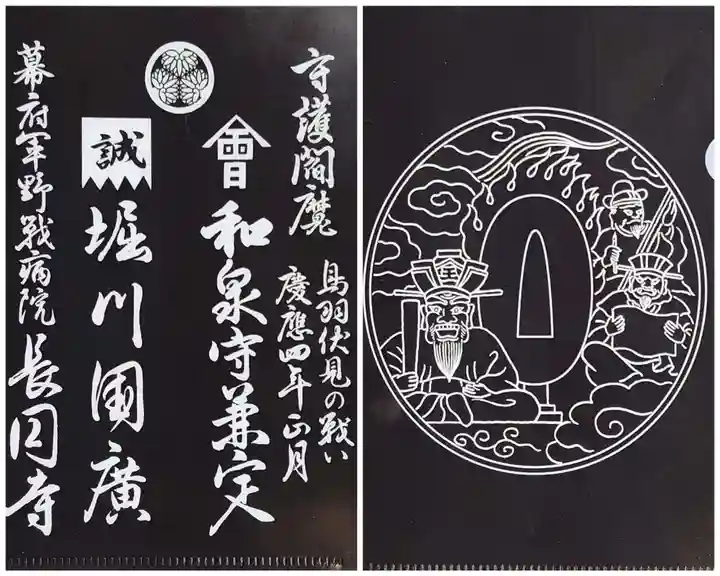 守護閻魔
鳥羽伏見の戦い
慶應四年正月
會
和泉守兼定
誠
堀川国廣
幕府軍野戰病院 長円寺
王